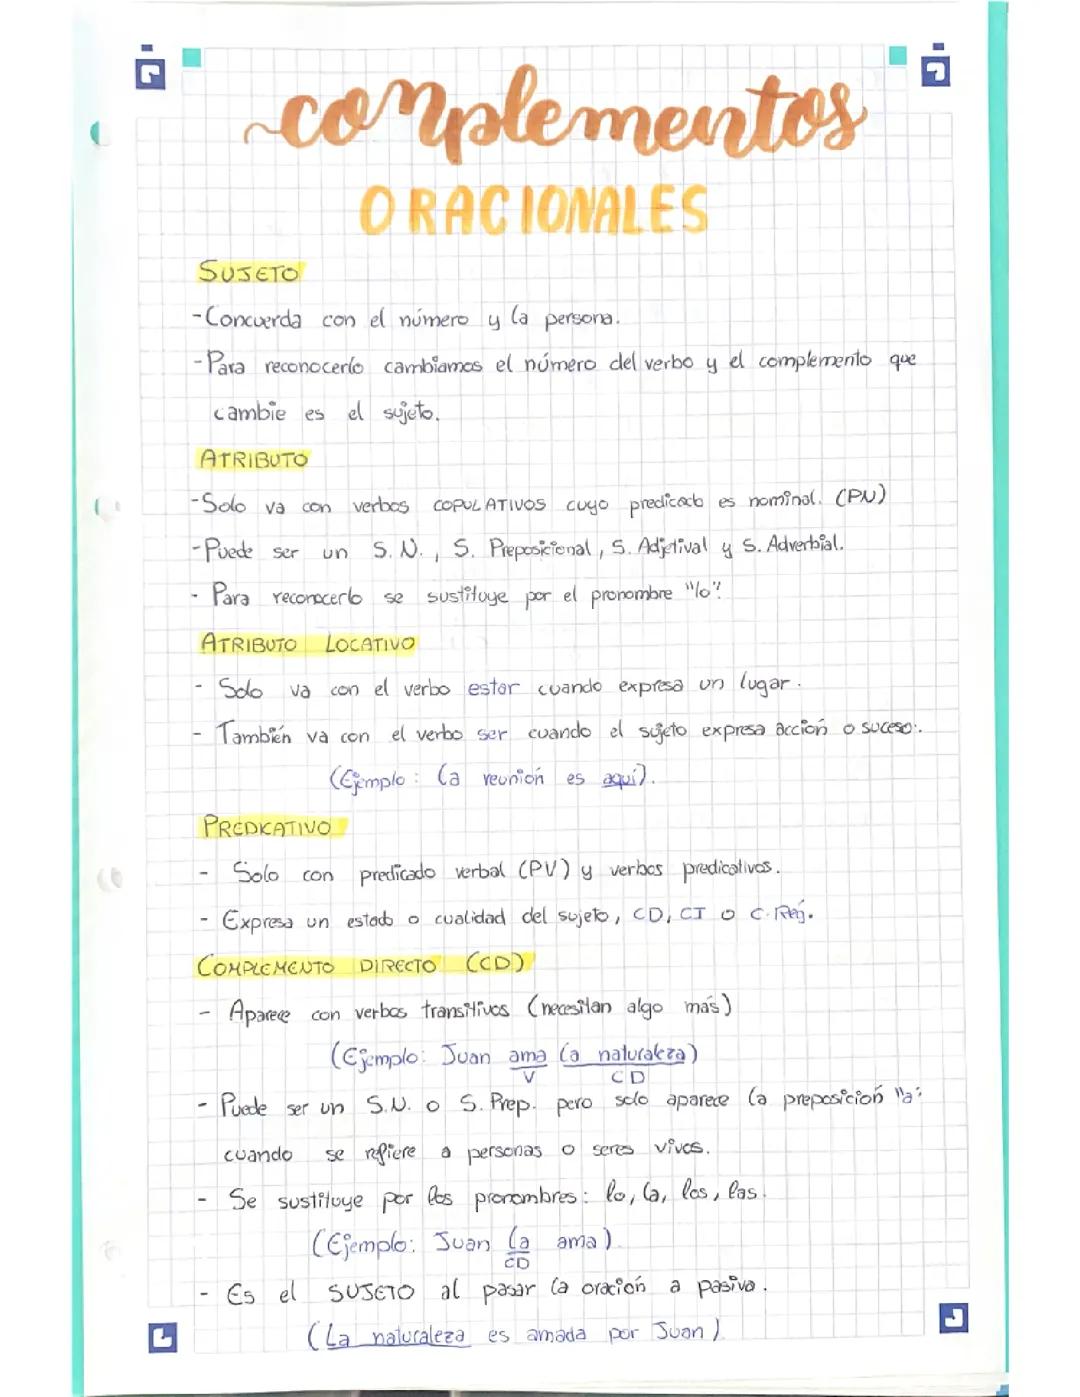 complementos
ORACIONALES
SUJETO
- Concuerda con el número y la persona.
- Para reconocerlo cambiamos el número del verbo y el complemento que
cambie es el sujeto.
ATRIBUTO
- Solo va con verbos COPULATIVOS cuyo predicado es nominal. (PN)
- Puede ser un S.N., S. Preposicional, S. Adjetival y S. Adverbial.
- Para reconocerlo se sustituye por el pronombre "lo".
ATRIBUTO LOCATIVO
- Solo va con el verbo estar cuando expresa un lugar.
- También va con el verbo ser cuando el sujeto expresa acción o suceso:.
(Ejemplo: la reunión es aquí).
PREDICATIVO
- Solo con predicado verbal (PV) y verbos predicativos.
- Expresa un estado o cualidad del sujeto, CD, CI o C. Reg.
COMPLEMENTO DIRECTO (CD)
- Aparece con verbos transitivos (necesitan algo más)
(Ejemplo: Juan ama la naturaleza)
V CD
- Puede ser un S.N. o S. Prep. pero solo aparece la preposición "a"
cuando se refiere a personas o seres vivos.
- Se sustituye por los pronombres: lo, la, los, las.
(Ejemplo: Juan la ama).
CD
- Es el SUJETO al pasar la oración a pasiva.
(La naturaleza es amada por Juan)